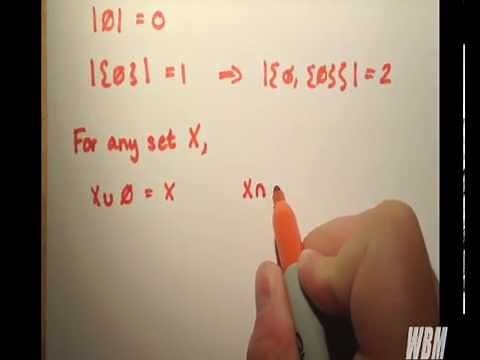 |∅| = 0
|{∅}| = 1 ⇒ |{∅, {∅}}| = 2
For any set X,
X∪∅ = X X∩
WBM